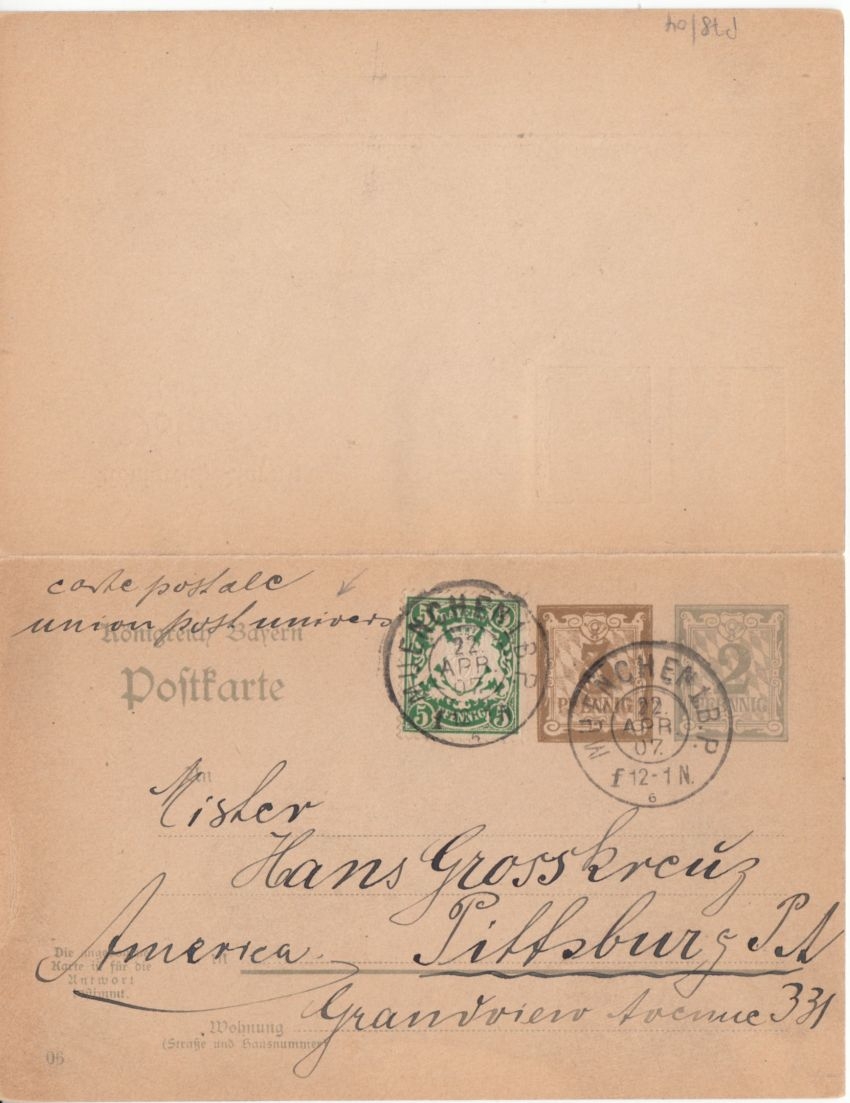 P78/04
carte postale
union post univers
Königreich Bayern
Postkarte
BAYERN
5 PFENNIG 5
3
PFENNIG
2
PFENNIG
MUENCHEN 1.B.P.
22
APR.
07.
MUENCHEN 1.B.P.
22.
APR
07.
F 12-1 N.
6
An
Mister
Hans Grosskreuz
America. in Pittsburg PA
Die angebogene
Karte ist für die
Antwort
bestimmt.
Grandview Avenue 331
Wohnung
(Straße und Hausnummer)
06